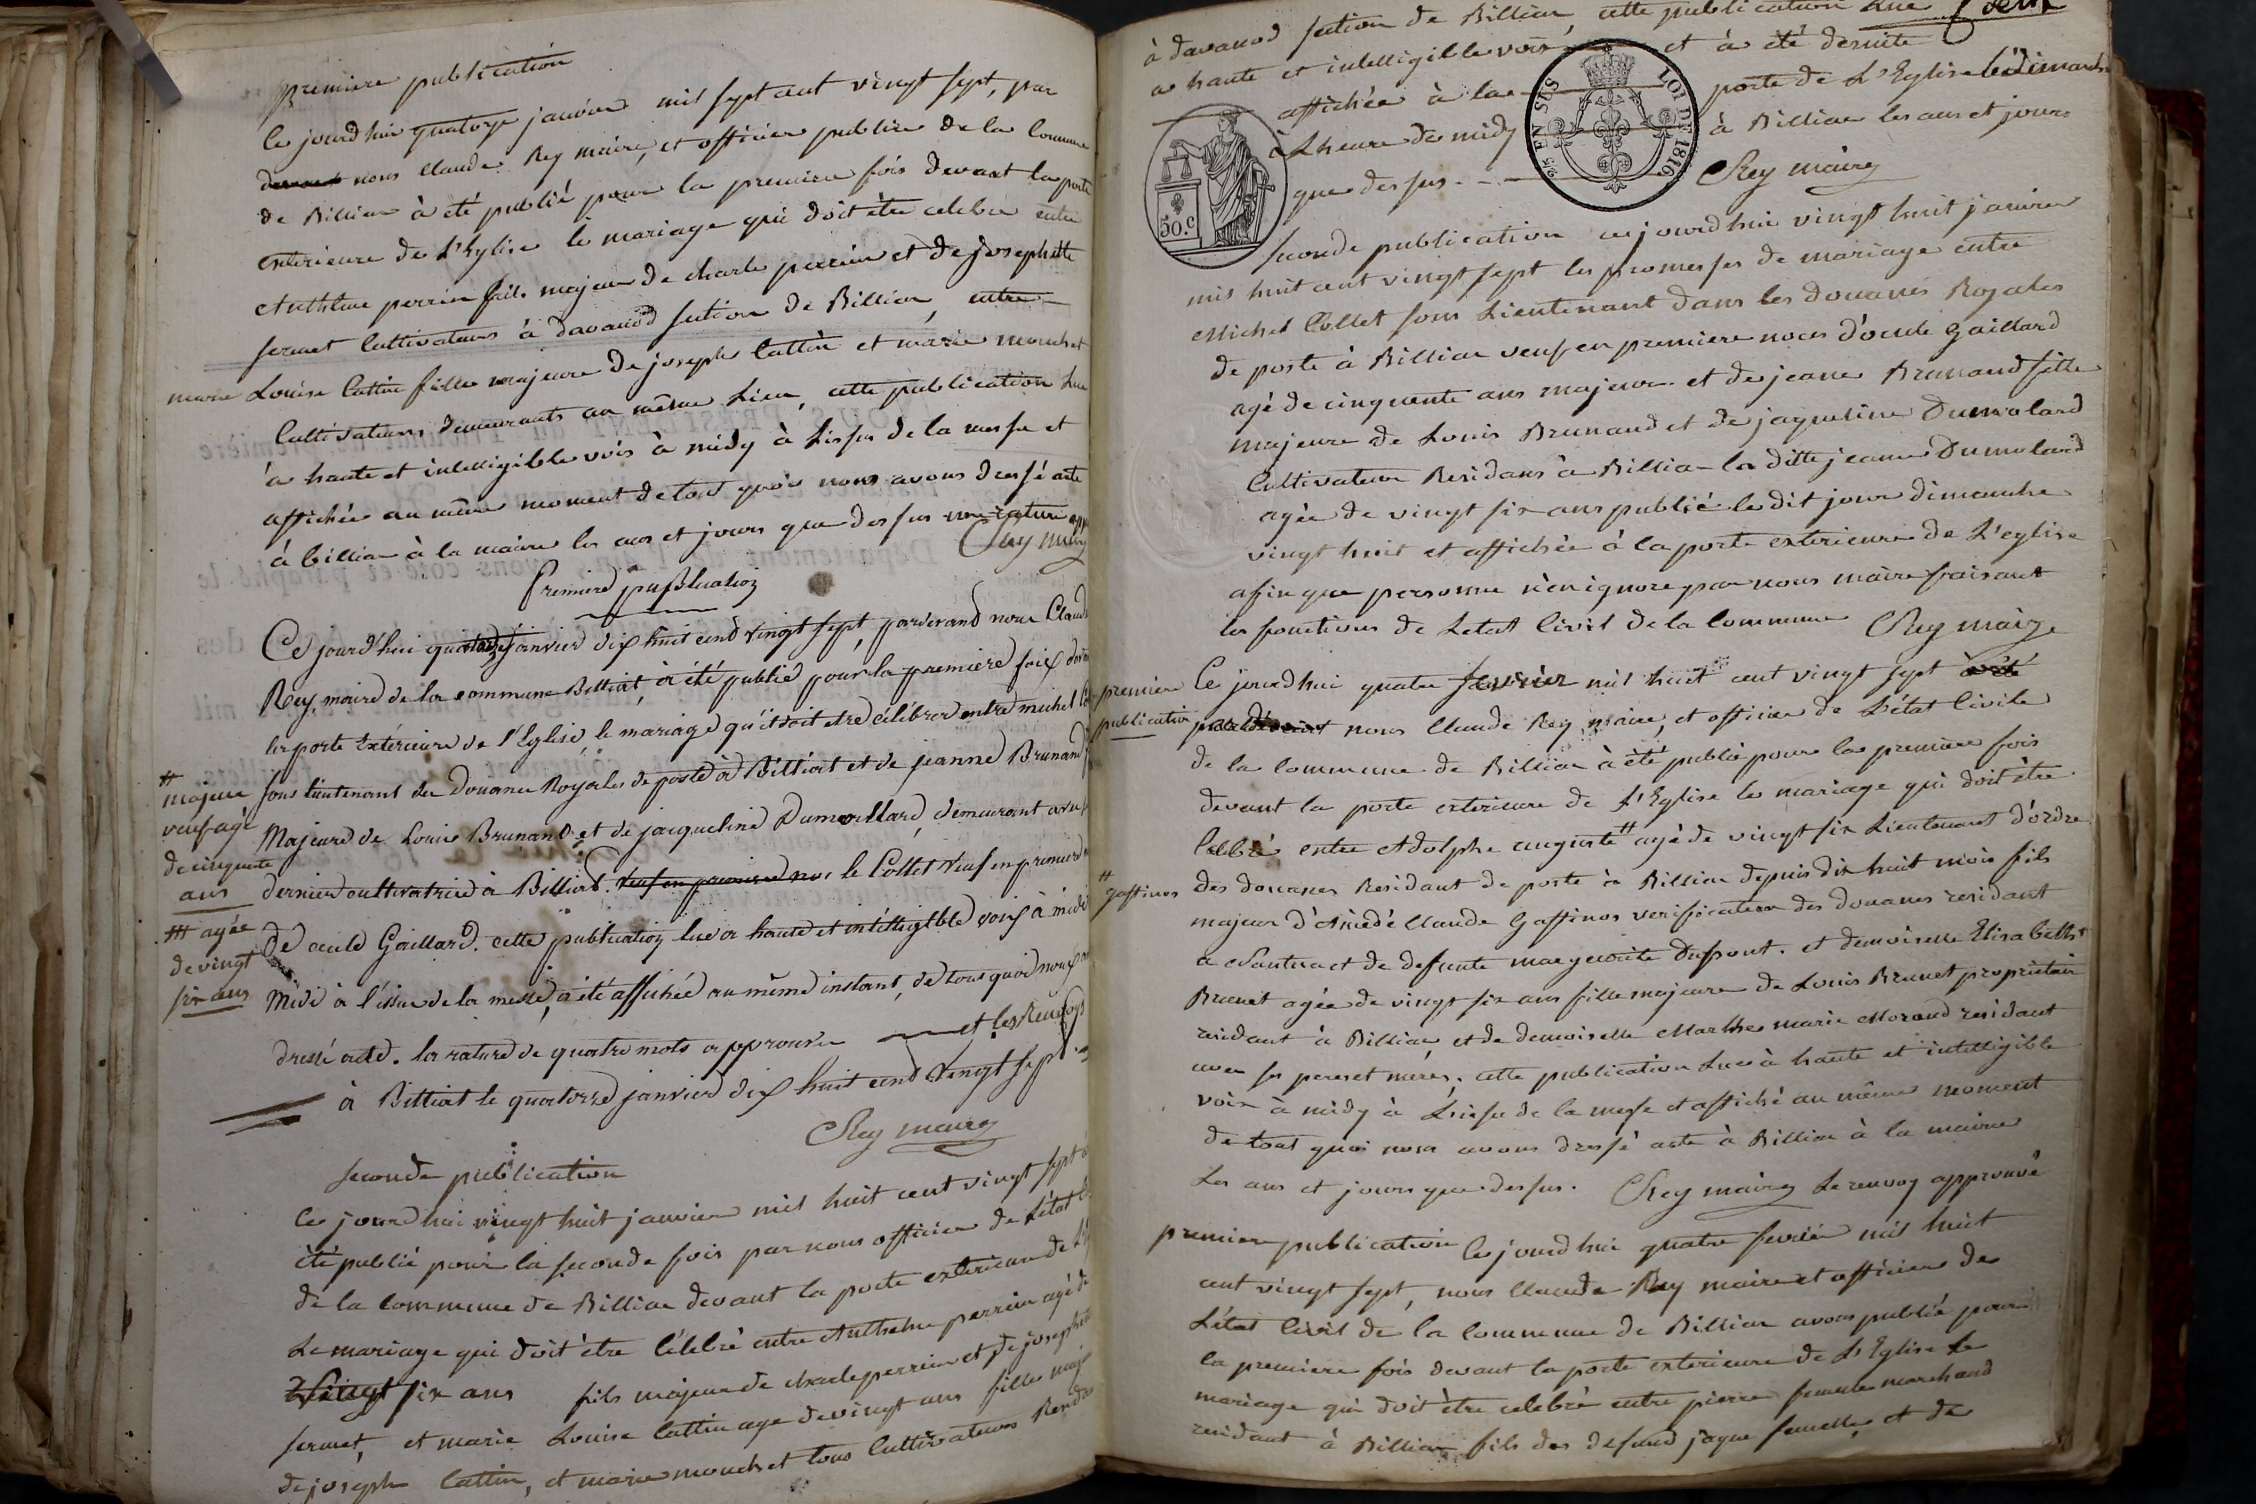 premiere publication
Ce jourd'hui quatorze janvier mil sept cent vingt sept, par
devant nous Claude Rey maire, et officier publice de la commune
de Billiae à été publié pour la premiere fois devant la porte
exterieure de L'Eglise le mariage qui doit être celebré entre
Anthelme perrin fils majeur de charle perrin et de josephtte
fermet Cultivateurs à davanod section de Billiae, entre
marie Louise Cattin fille majeure de joseph Cattin et marie mouchet
Cultivateurs demeurants au même Lieu, cette publication Lue
à haute et intelligible voix à midy à Lissue de la messe et
affichée au même moment de tout quoi nous avons dressé acte
à billiae à la mairie les ans et jours que dessus une rature app
CRey maire
Premiere publication
Ce jourd'hui quatorze janvier dix huit cent vingt sept, pardevand nous Claude
Rey, maire de la commune Billiat, à été publié pour la premiere foix devan
la porte Extérieure de l'Eglise, le mariage qu'il doit etre célébrer entre michel Co
# majeur veuf agé de cinquante ans
sous lieutenant des Douanes Royales de poste à Billiat et de jeanne Brunand
Majeure de Louis Brunand et de jacqueline Dumollard, demeurant avec
dernier cultivatrice à Billiat. veuf en premiere noc le Collet veuf en premiere
### agée de vingt six ans
de cecile Gaillard. cette publication lue à haute et intelligible voix à midi
Midi à l'issue de la messe, a été affichée au même instant, de tous quoi nous
dressé acte. la rature de quatre mots approuvée et les Renvoys
à Billiat le quatorze janvier dix huit cent vingt sept.
CRey maire
seconde publication
Ce jourd'hui vingt huit janvier mil huit cent vingt sept a
été publié pour la seconde fois par nous officier de L'état
de la commune de Billiae devant la porte exterieure de L'E
Le mariage qui doit être célébré entre Anthelme perrin agé de
vingt six ans fils majeur de charle perrin et de josephte
fermet, et marie Louise Cattin age de vingt ans fille maj
de joseph Cattin, et marie mouchet tous Cultivateurs Residen
à davanod section de Billiae, cette publication Lue
a haute et intelligible voix et à été desuite
affichée à la porte de L'Eglise le dimanche
à Lheure de midy à Billiae les ans et jours
que dessus.
CRey maire
50.C
25c EN SUS LOI DE 1816
seconde publication cejourd'hui vingt huit janvier
mil huit cent vingt sept les promesses de mariage entre
Michel Collet sous Lieutenant dans les douanes Royales
de poste à Billiae veuf en premiere noces d'ecile gaillard
agé de cinquente ans majeur et de jeanne Brunaud fille
majeure de Louis Brunaud et de jaqueline Dumolard
Cultivateur Residans à Billia la ditte jeanne Dumolard
agée de vingt six ans publié le dit jour dimanche
vingt huit et affichée à la porte exterieure de L'eglise
afin que personne n'en ignore par nous maire faisant
les fonctions de Letat Civil de la Commune CRey maire
premiere publication
Ce jourd'hui quatre fevrier mil huit cent vingt sept a été
par devant nous Claude Rey maire, et officier de L'état Civile
de la Commune de Billiae à été publié pour la premiere fois
devant la porte exterieure de L'Eglise le mariage qui doit être
Célébré entre Adolphe auguste # agé de vingt six Lieutenant d'ordre
# gaffinos
des douanes Residant de poste à Billiae depuis dix huit mois fils
majeur d'Amédé Claude Gaffinos verification des douanes residant
a Nantua et de defunte marguerite Dupont. et demoiselle Elisabetht
Brunet agée de vingt six ans fille majeure de Louis Brunet propriétair
residant à Billiae, et de demoiselle Marthe marie Morand residant
avec ses peres et meres, cette publication Lue à haute et intelligible
voix à midy à Lissue de la messe et affiché au même moment
de tout quoi nous avons dressé acte à Billiae à la mairie
Les ans et jours que dessus. CRey maire Le renvoy approuvé
premier publication Ce jourd'hui quatre fevrier mil huit
cent vingt sept, nous Claude Rey maire et officier de
L'état Civil de la Commune de Billiae avons publié pour
la premiere fois devant la porte exterieure de L'Eglise Le
mariage qui doit être celebré entre pierre femelle marchand
residant à Billiae fils des defund jaque femelle, et de